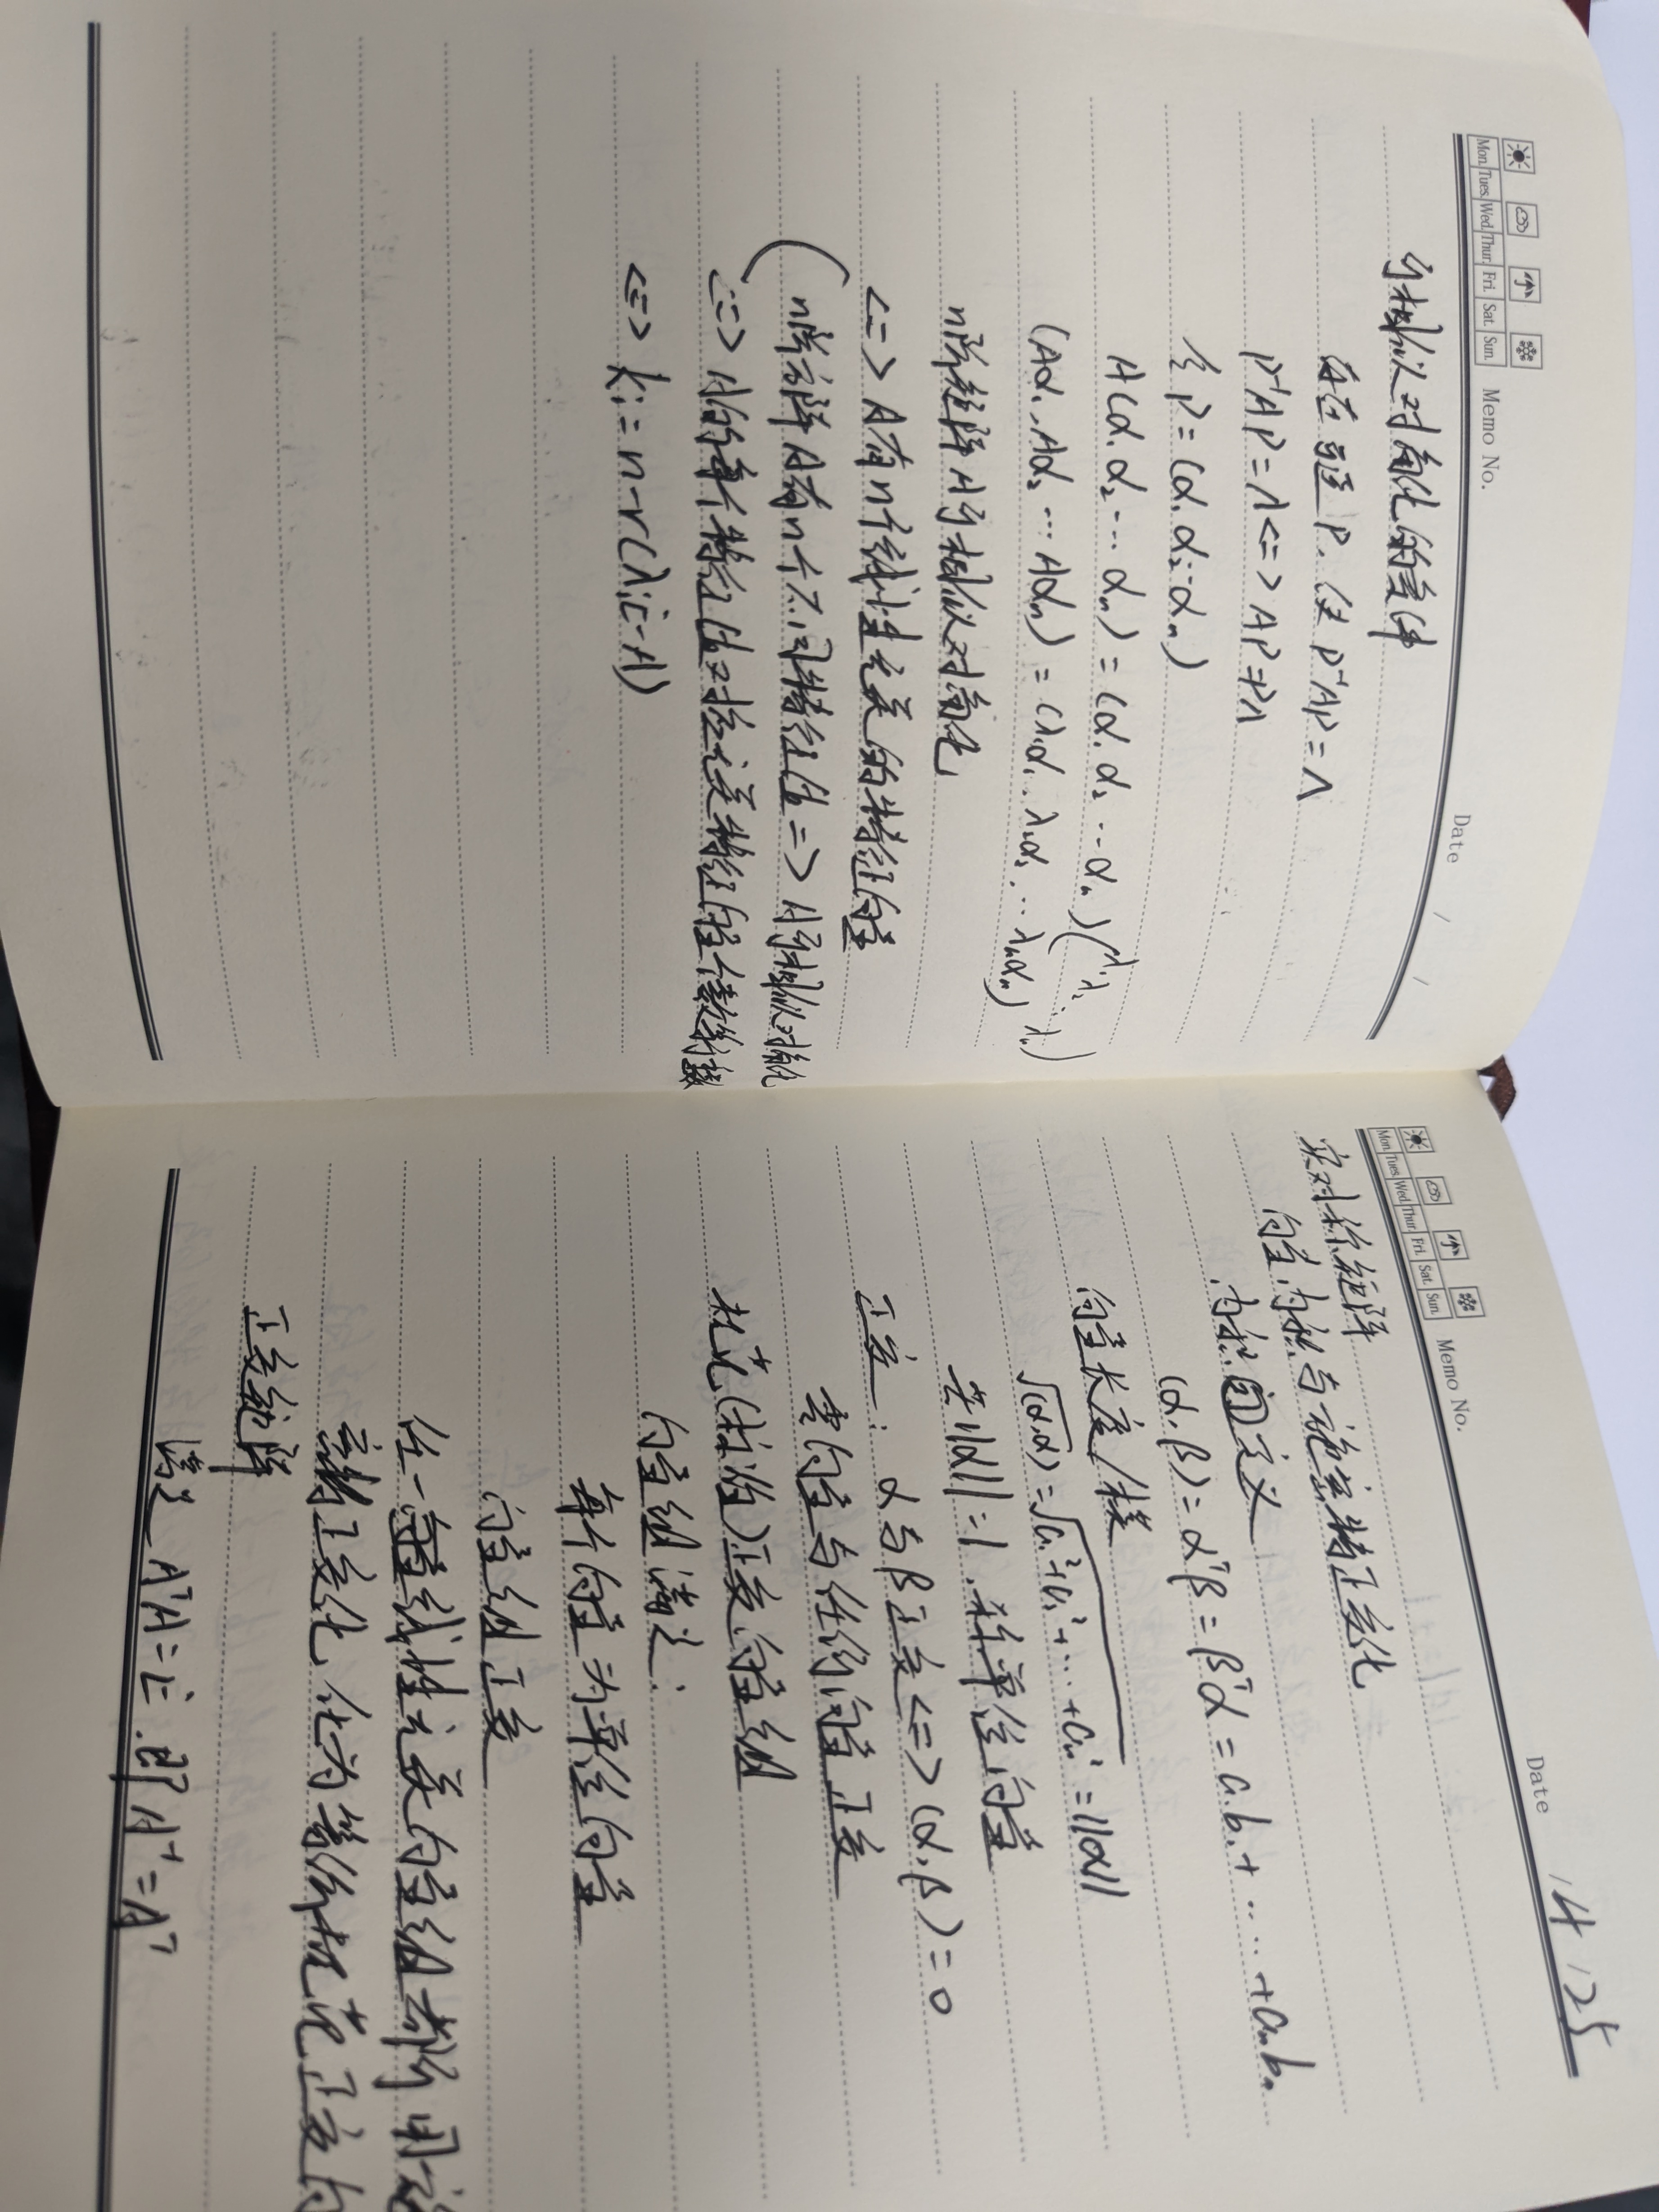 Mon. Tues. Wed. Thur. Fri. Sat. Sun.
Memo No.
Date / /
可相似对角化的条件
存在可逆P,使P⁻¹AP=Λ
P⁻¹AP=Λ<=>AP=PΛ
令P=(α₁α₂…αₙ)
A(α₁α₂…αₙ)=(α₁α₂…αₙ)(λ₁λ₂…λₙ)
(Aα₁,Aα₂…Aαₙ)=(λ₁α₁,λ₂α₂…λₙαₙ)
n阶矩阵A可相似对角化
<=>A有n个线性无关的特征向量
(n阶方阵A有n个不同特征值=>A可相似对角化
<=>A的每个特征值对应无关特征向量个数等于重数
<=>kᵢ=n-r(λᵢE-A)
Mon. Tues. Wed. Thur. Fri. Sat. Sun.
Memo No.
Date / 4 / 25
实对称矩阵
向量内积与施密特正交化
内积 定义
(α,β)=αᵀβ=βᵀα=a₁b₁+…+aₙbₙ
向量长度/模
√(α,α)=√a₁²+a₂²+…+aₙ²=||α||
若||α||=1,称单位向量
正交:α与β正交<=>(α,β)=0
零向量与任何向量正交
规范(标准)正交向量组
向量组满足:
每个向量为单位向量
向量组正交
任一线性无关向量组都可用施
密特正交化,化为等价规范正交向
正交矩阵
满足AᵀA=E,即A⁻¹=Aᵀ